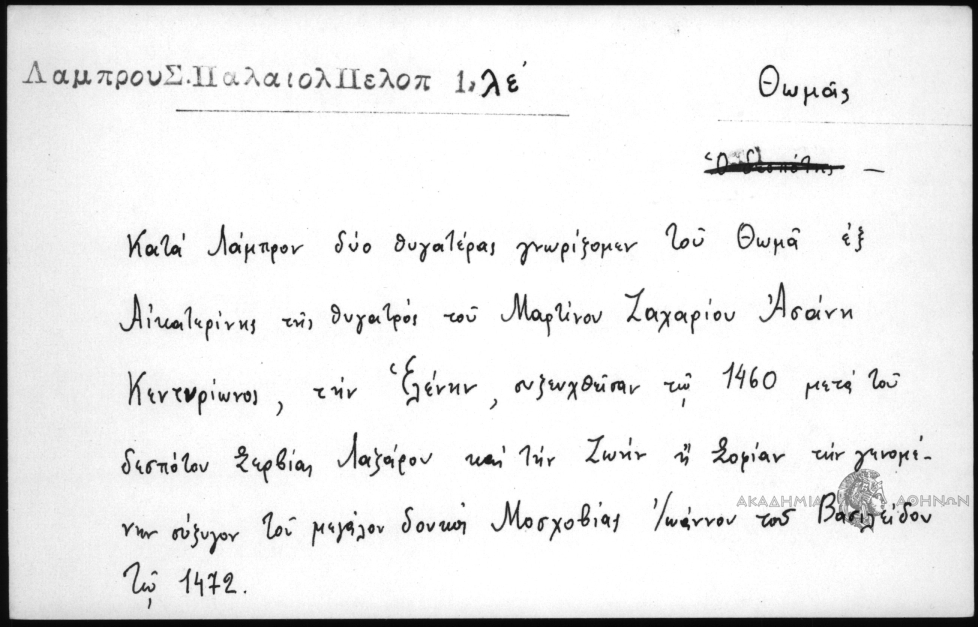 ΛαμπρουΣ.ΠαλαιολΠελοπ 1, λε΄
Θωμᾶς
Ὁ δεσπότης —
Κατά Λάμπρον δύο θυγατέρας γνωρίζομεν τοῦ Θωμᾶ ἐξ
Αἰκατερίνης τῆς θυγατρός τοῦ Μαρτίνου Ζαχαρίου Ἀσάνη
Κεντυρίωνος, τήν Ἑλένην, συζευχθεῖσαν τῷ 1460 μετά τοῦ
δεσπότου Σερβίας Λαζάρου καί τήν Ζωήν ἤ Σοφίαν τήν γενομέ-
νην σύζυγον τοῦ μεγάλου δουκός Μοσχοβίας Ἰωάννου τοῦ Βασιλείδου
τῷ 1472.
ΑΚΑΔΗΜΙΑ ΑΘΗΝΩΝ